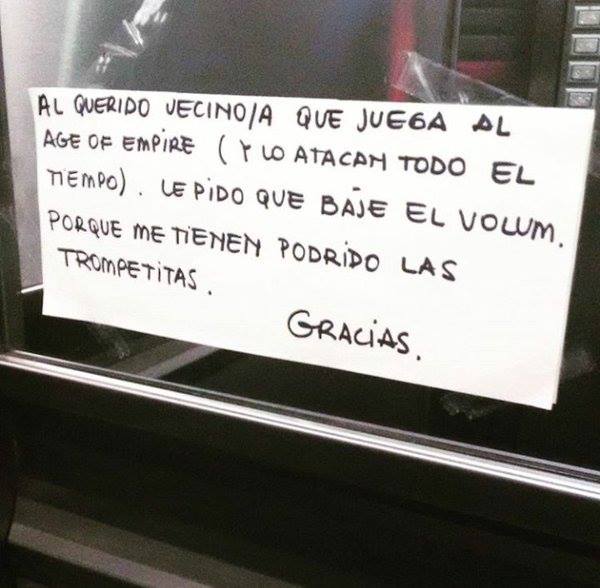 AL QUERIDO VECINO/A QUE JUEGA AL
AGE OF EMPIRE (Y LO ATACAN TODO EL
TIEMPO). LE PIDO QUE BAJE EL VOLUM.
PORQUE ME TIENEN PODRIDO LAS
TROMPETITAS.
GRACIAS.